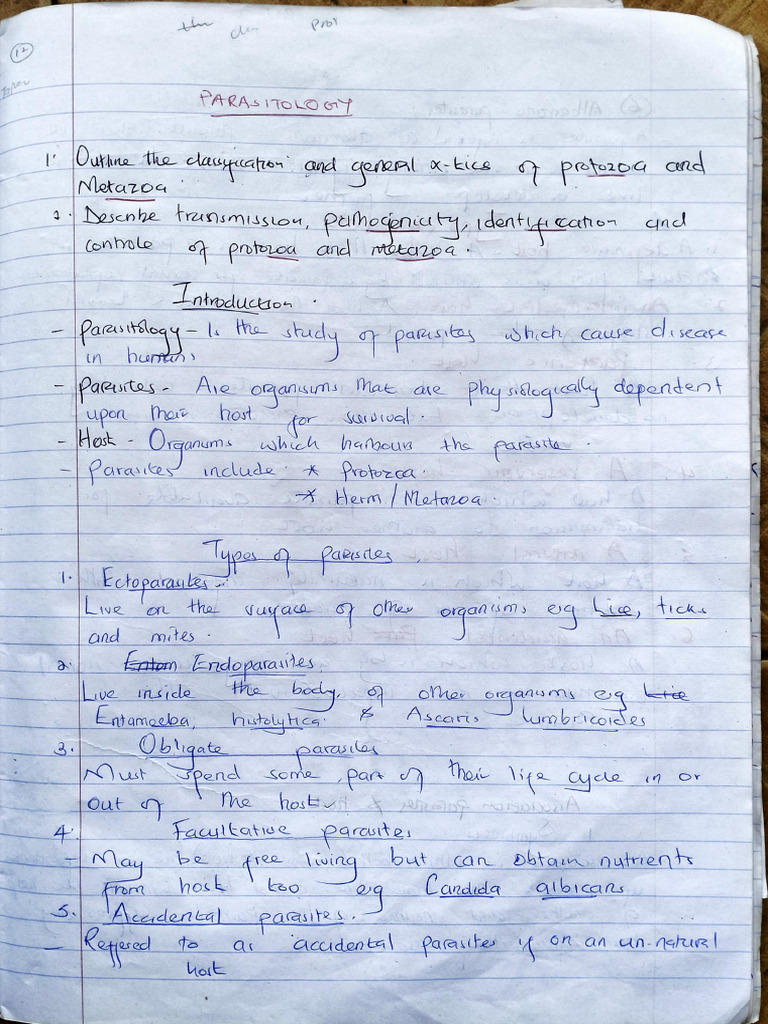 12
the
Prot
PARASITOLOGY
1. Outline the classification and general x-tics of protozoa and
Metazoa.
2. Describe transmission, pathogenicity, identification and
controle of protozoa and metazoa.
Introduction.
- Parasitology - Is the study of parasites which cause disease
in humans
- Parasites - Are organisms that are physiologically dependent
upon their host for survival.
- Host - Organisms which harbours the parasite.
- Parasites include * Protozoa.
* Herm / Metazoa.
Types of Parasites.
1. Ectoparasites -
Live on the surface of other organisms e.g Lice, ticks
and mites.
2. Entom Endoparasites
Live inside the body of other organisms e.g Lice
Entamoeba histolytica & Ascaris lumbricoides
3. Obligate parasites
Must spend some part of their life cycle in or
out of the host.
4. Facultative parasites
- May be free living but can obtain nutrients
from host too e.g Candida albicans
5. Accidental parasites.
- Reffered to as accidental parasites if on an un-natural
host